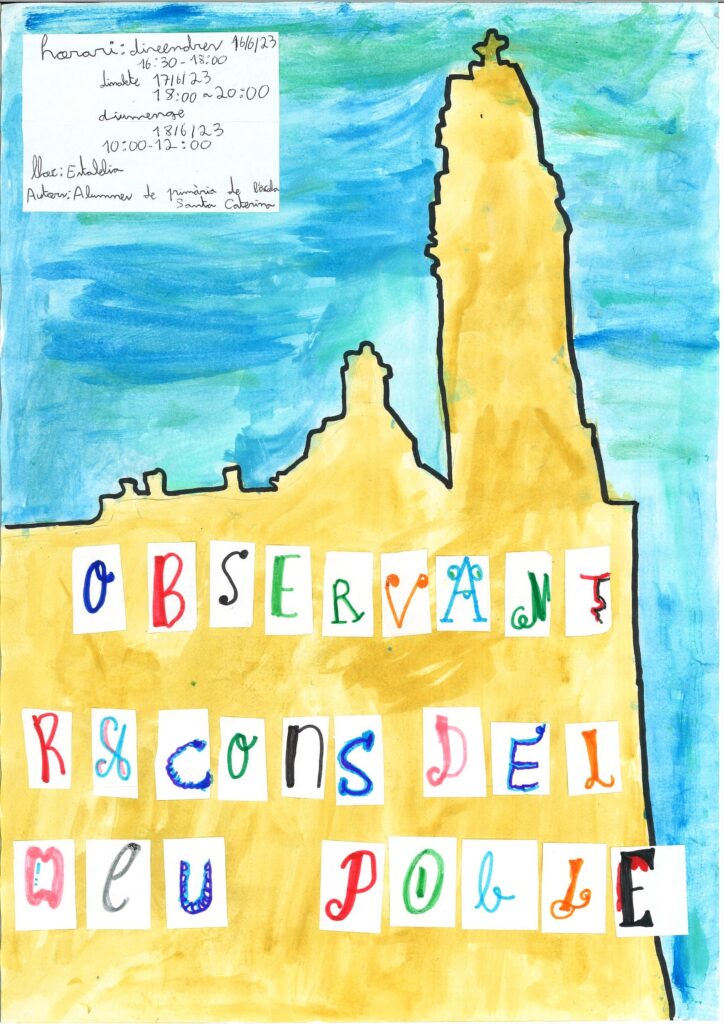 horari: divendres 16/6/23
16:30-18:00
dissabte 17/6/23
18:00 ~ 20:00
diumenge
18/6/23
10:00-12:00
lloc: Estaldia
Autors: Alumnes de primària de l'escola
Santa Caterina
OBSERVANT
RACONS DEL
MEU POBLE